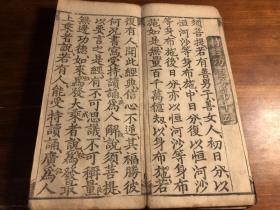 持經功德分第十五
須菩提若有善男子善女人初日分以
恒河沙等身布施中日分復以恒河沙
等身布施後日分亦以恒河沙等身布
施如是無量百千萬億劫以身布施若
復有人聞此經典信心不逆其福勝彼
何況書寫受持讀誦為人解說須菩提
以要言之是經有不可思議不可稱量
無邊功德如來為發大乘者說為發最
上乘者說若有人能受持讀誦廣為人